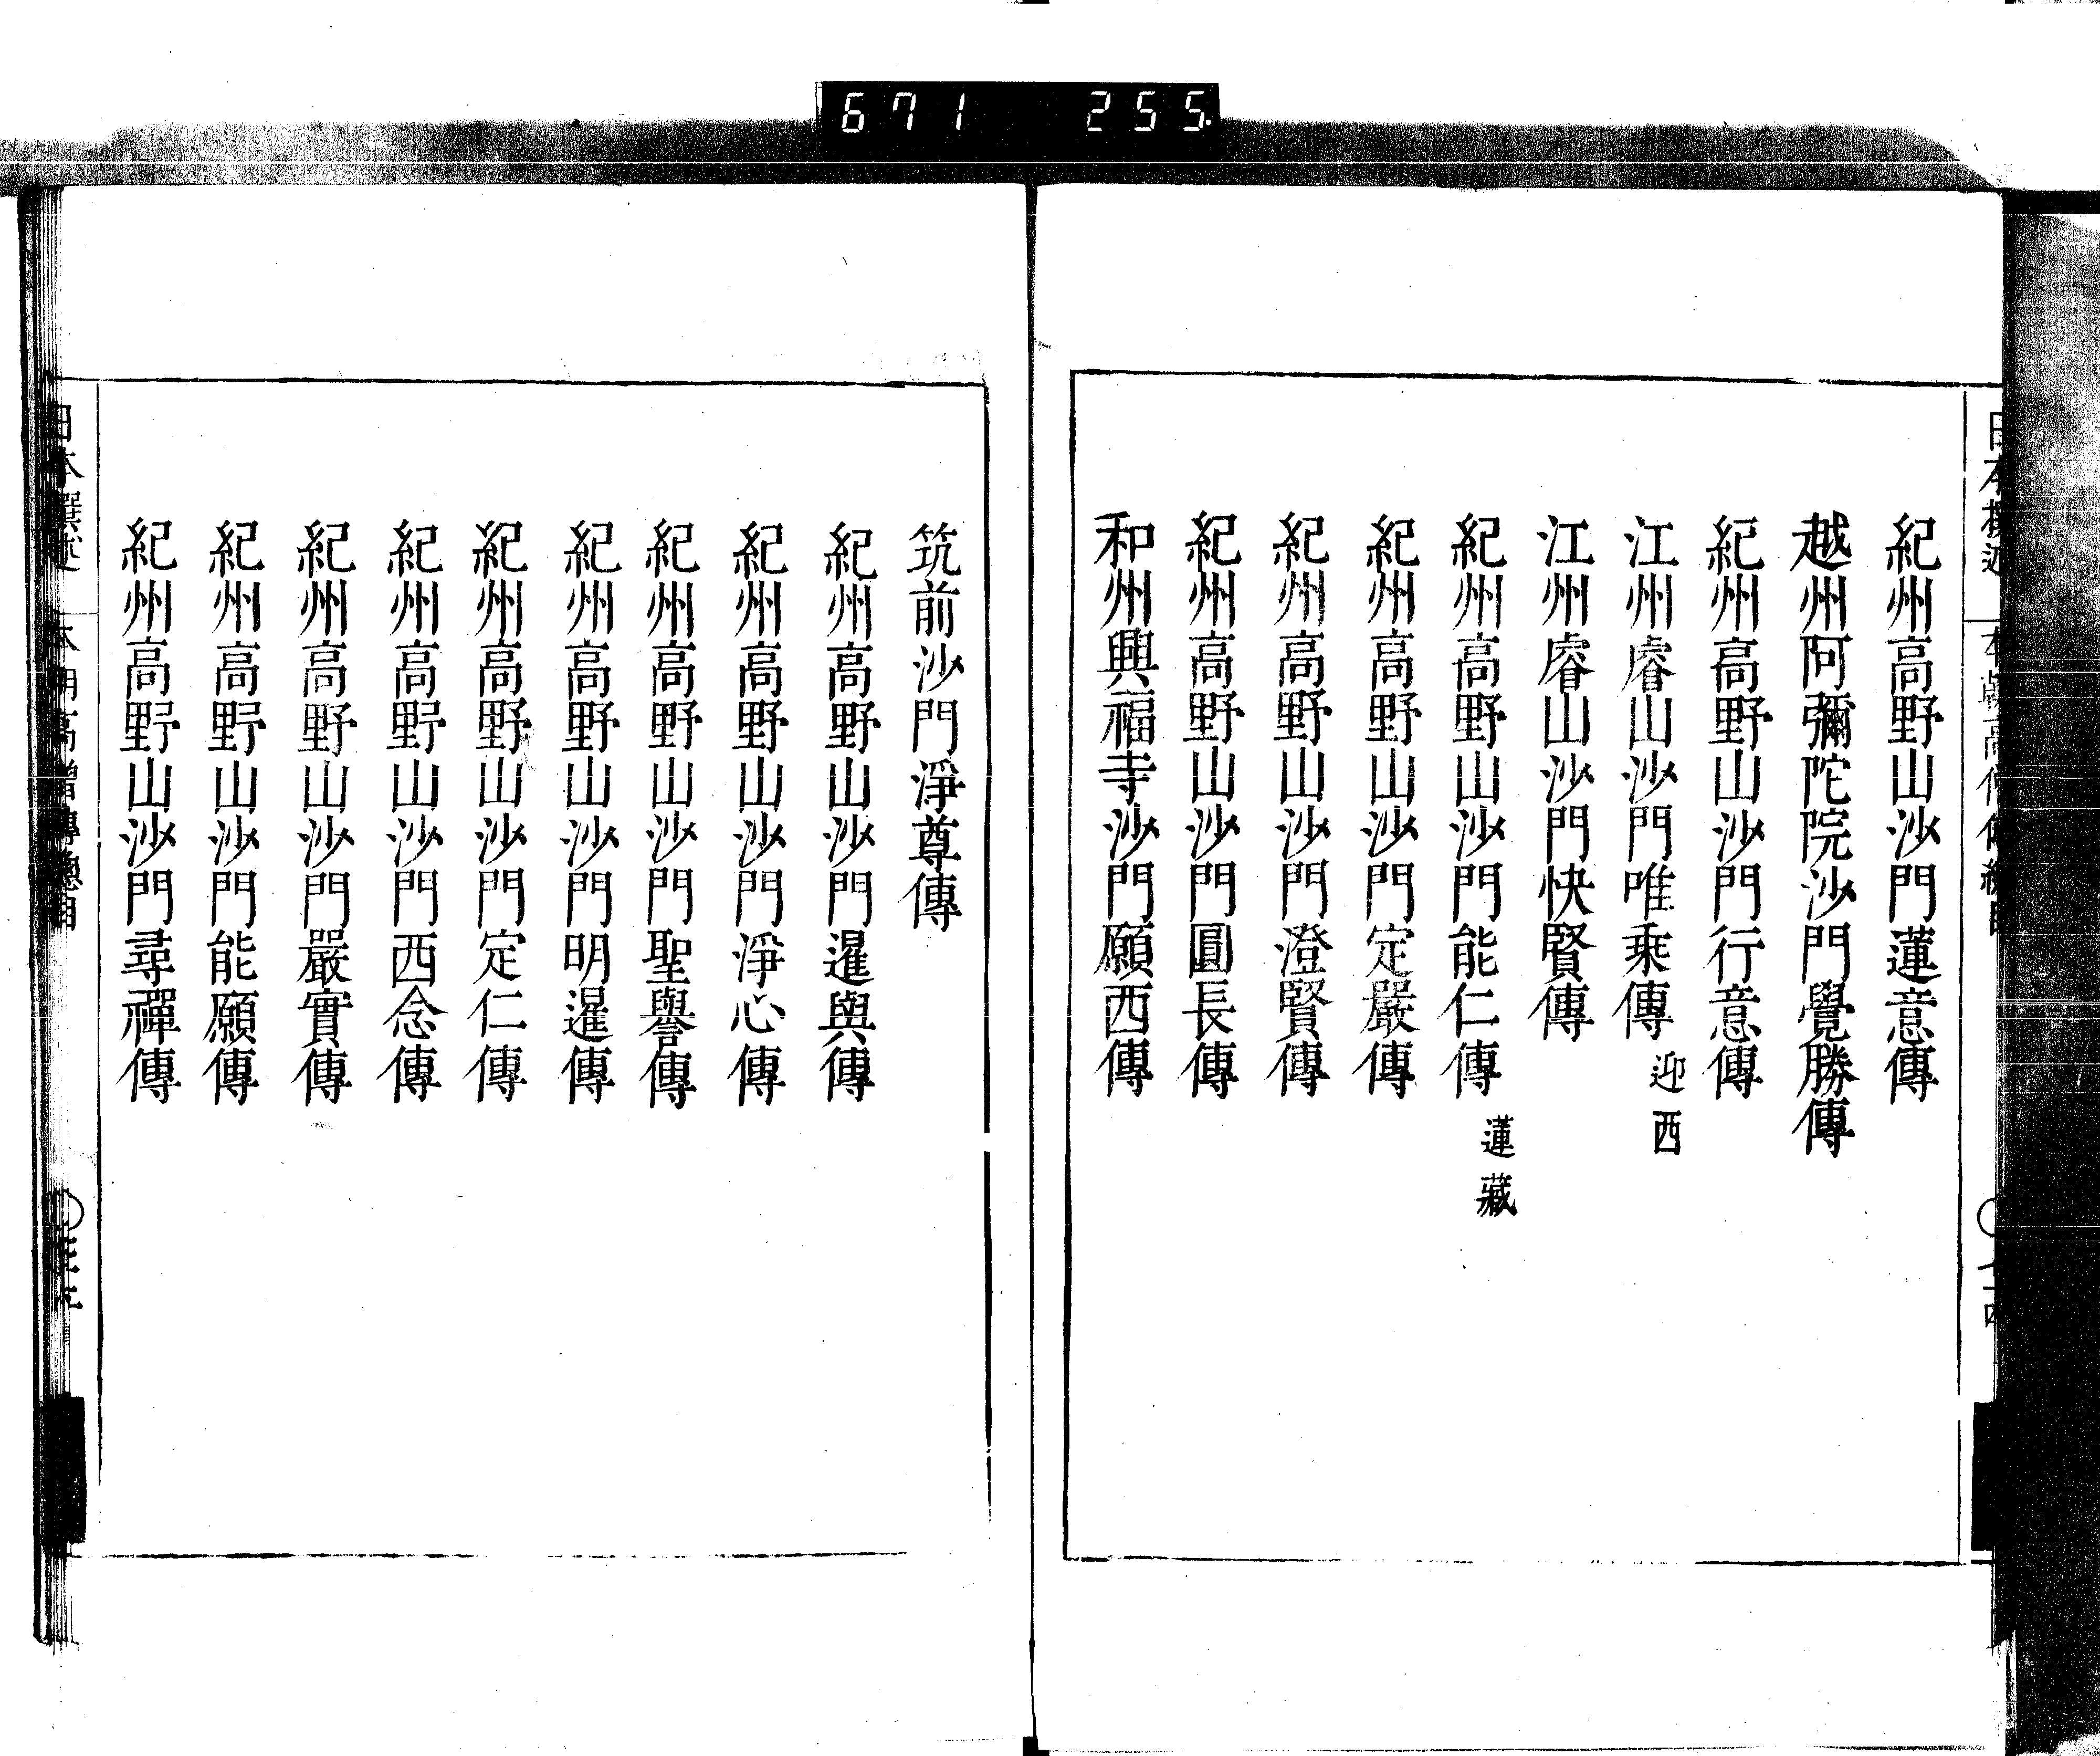 671 255
紀州高野山沙門蓮意傳
越州阿彌陀院沙門覺勝傳
紀州高野山沙門行意傳
江州睿山沙門唯乘傳 迎西
江州睿山沙門快賢傳
紀州高野山沙門能仁傳 蓮藏
紀州高野山沙門定嚴傳
紀州高野山沙門澄賢傳
紀州高野山沙門圓長傳
和州興福寺沙門願西傳
筑前沙門淨尊傳
紀州高野山沙門暹與傳
紀州高野山沙門淨心傳
紀州高野山沙門聖譽傳
紀州高野山沙門明暹傳
紀州高野山沙門定仁傳
紀州高野山沙門西念傳
紀州高野山沙門嚴實傳
紀州高野山沙門能願傳
紀州高野山沙門尋禪傳
日本撰述 本朝高僧傳總目